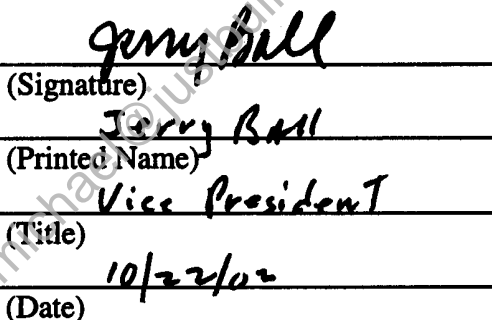 Jerry Ball
(Signature)
Jerry Ball
(Printed Name)
Vice President
(Title)
10/22/02
(Date)